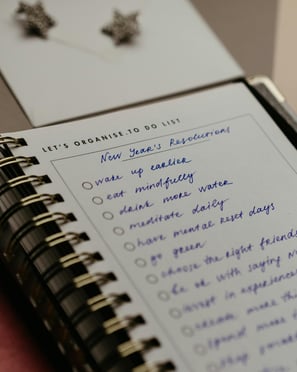 LET'S ORGANISE.TO DO LIST
New Year's Resolutions
wake up earlier
eat mindfully
drink more water
meditate daily
have mental reset days
go green
choose the right friends
be ok with saying
invest in experience
create more
spend more